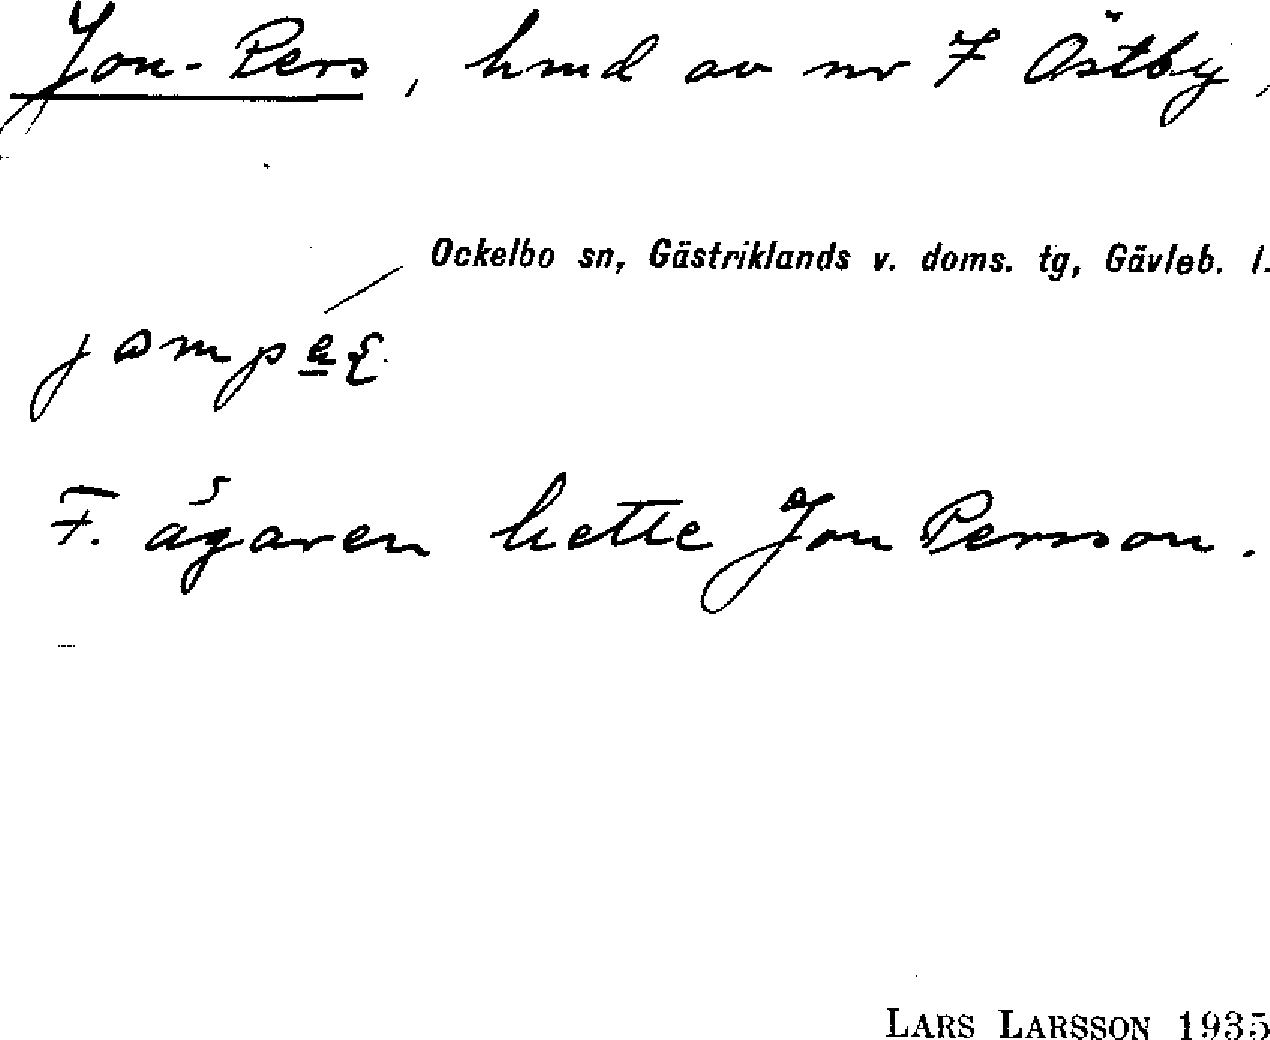 Jon-Pers, hmd av nr 7 Östby,
Ockelbo sn, Gästriklands v. doms. tg, Gävleb. l.
F. ägaren hette Jon Persson.
LARS LARSSON 1935